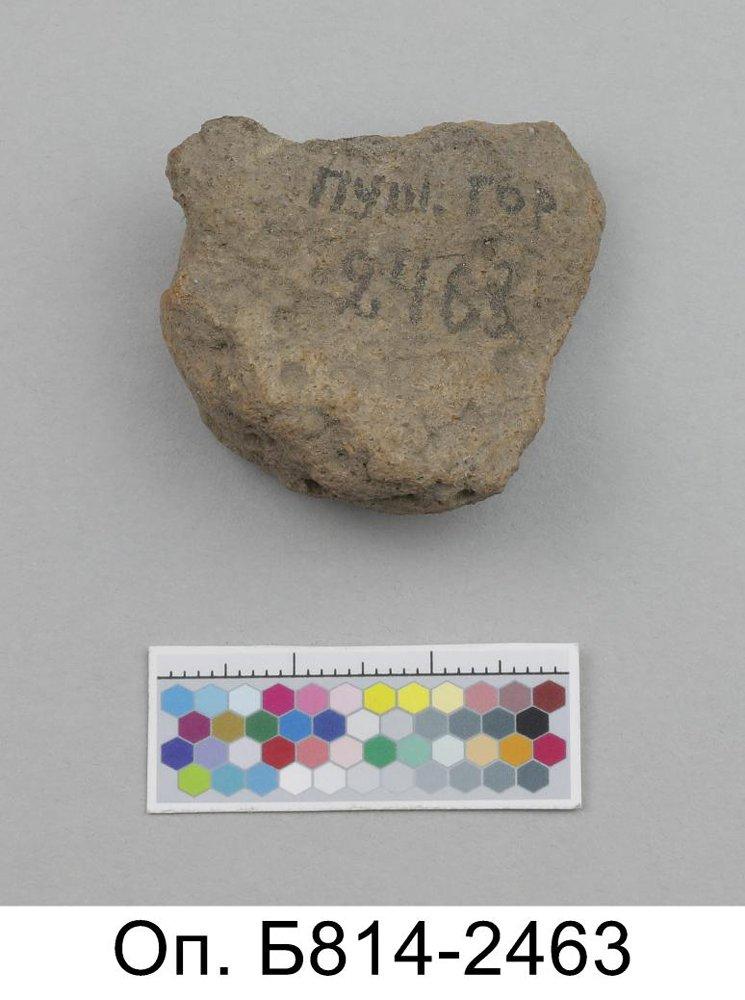 ПУШ. ГОР
2463
Оп. Б814-2463